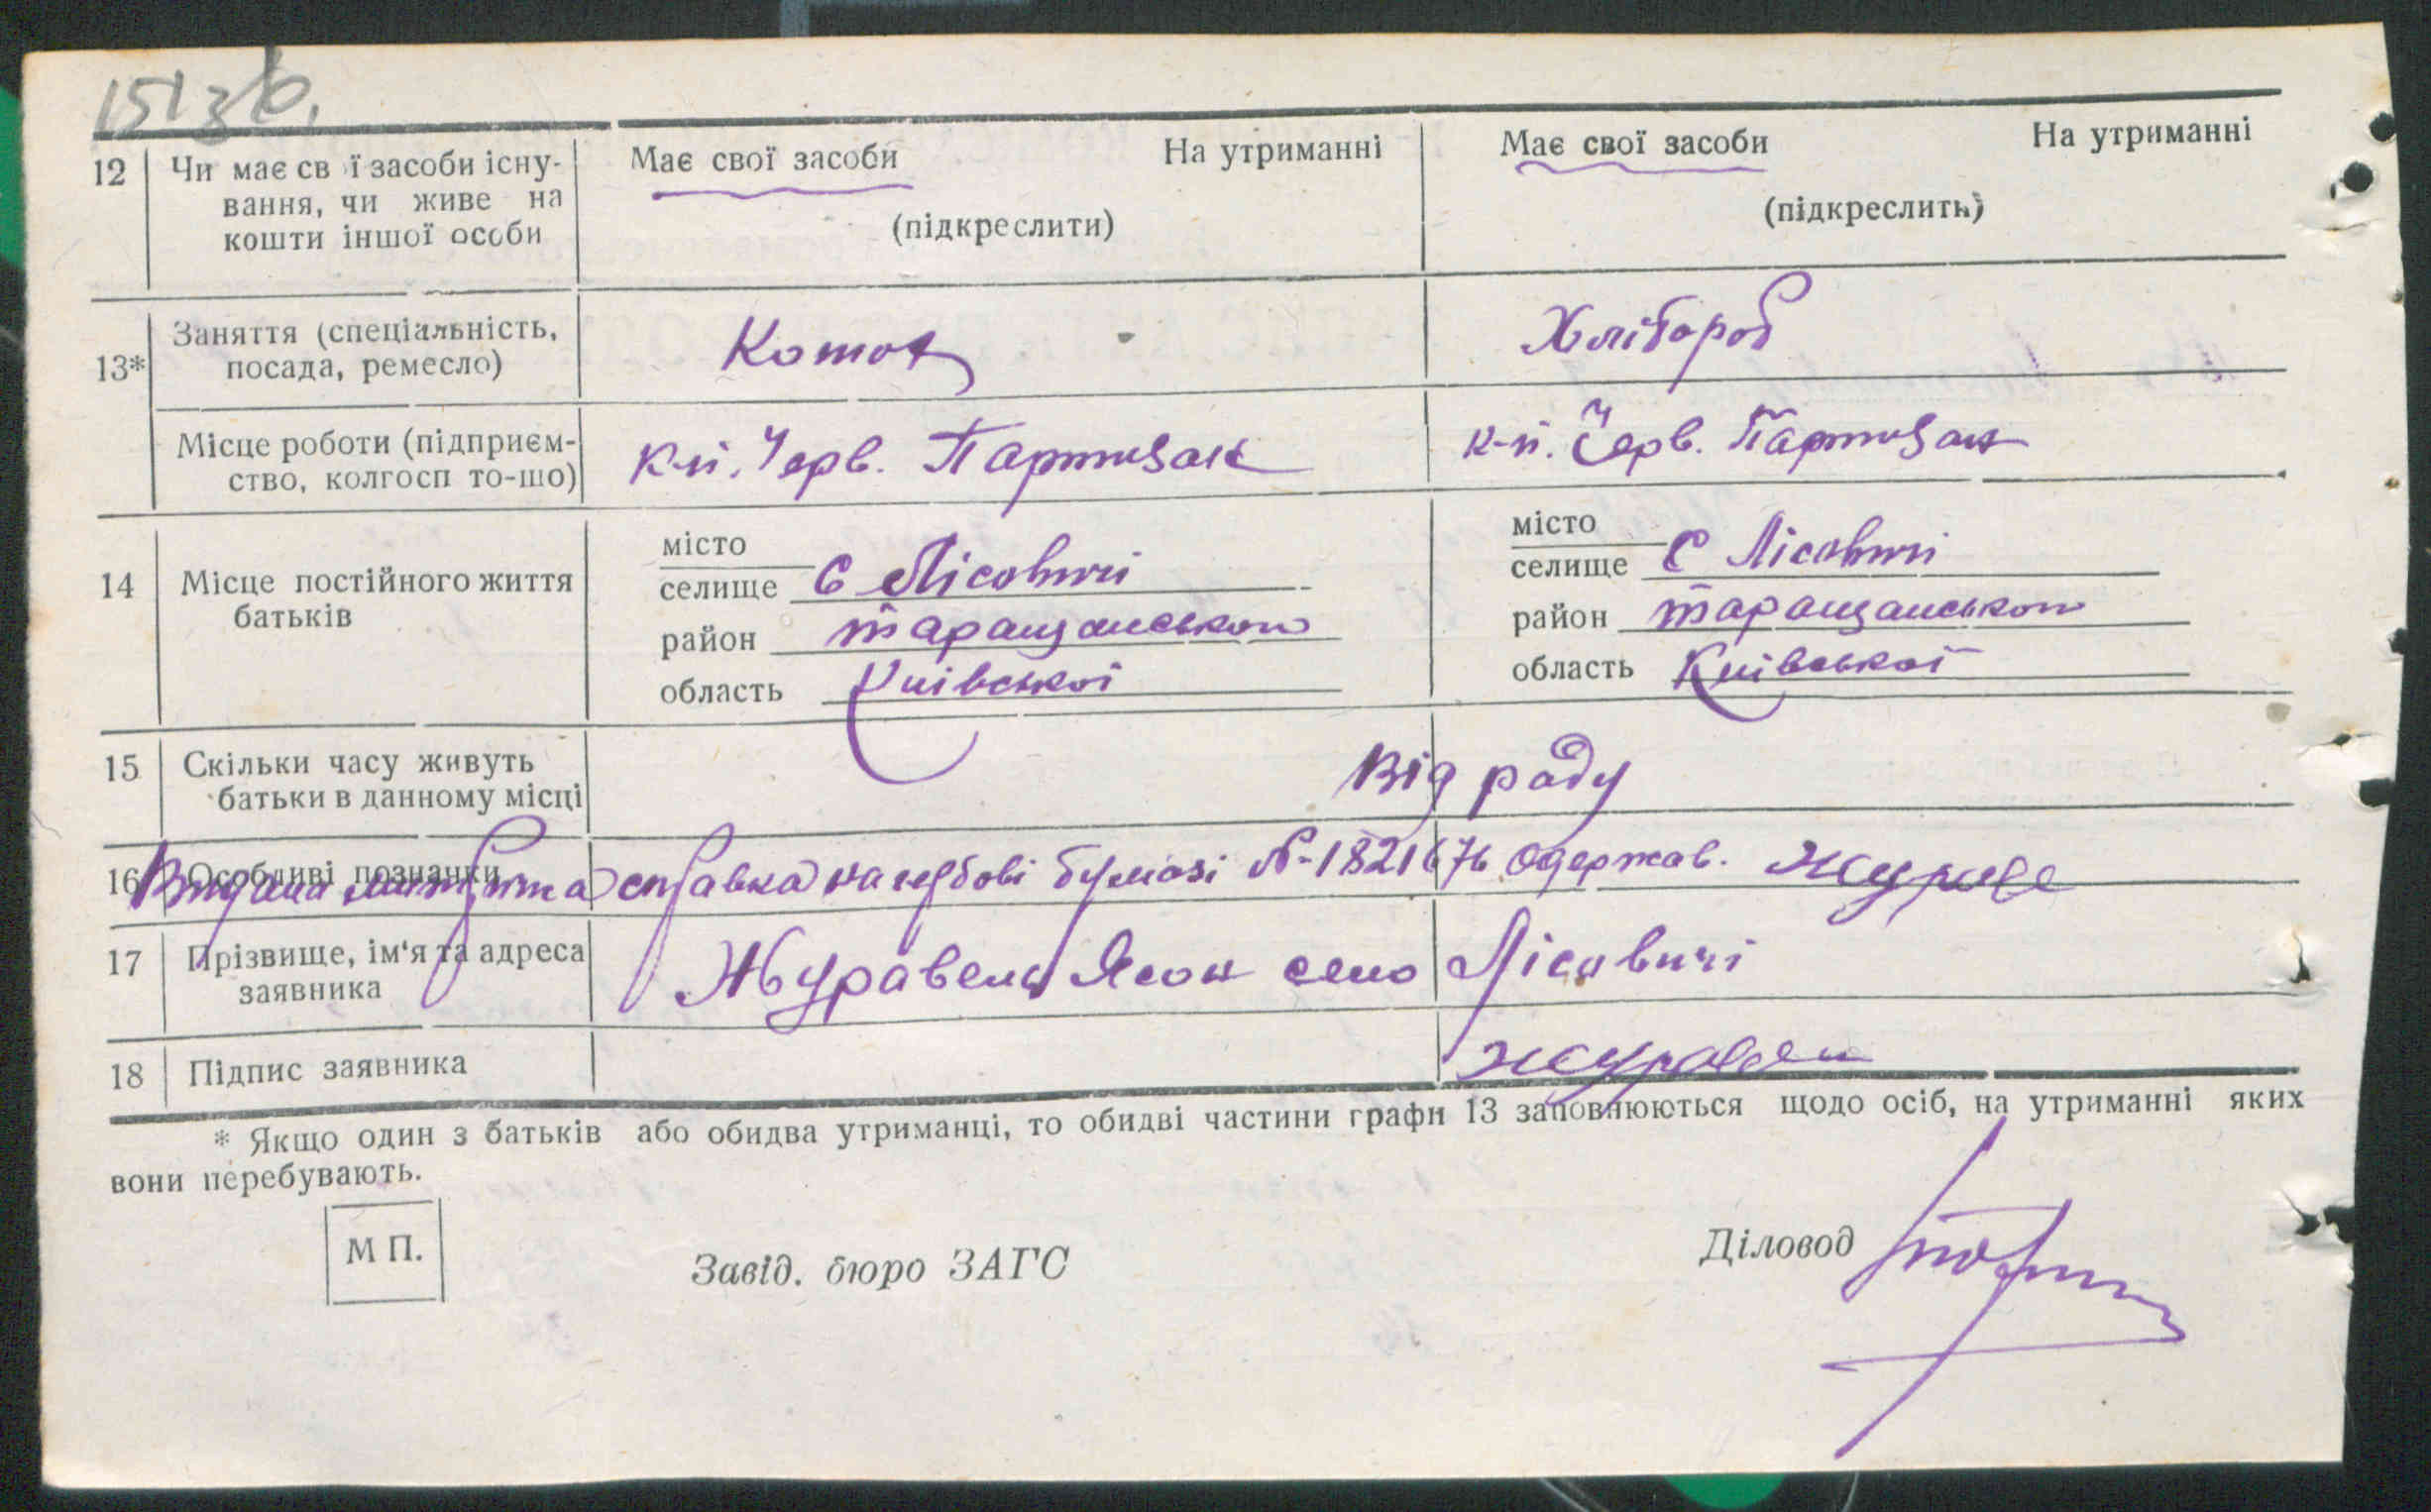 151зв.
12 Чи має св ї засоби існу- Має свої засоби На утриманні Має свої засоби На утриманні
вання, чи живе на
кошти іншої особи (підкреслити) (підкреслить)
Заняття (спеціальність,
13* посада, ремесло) Хлібороб
Місце роботи (підприєм- к-п. Черв. Партизан к-п. Черв. Партизан
ство, колгосп то-що)
14 Місце постійного життя
батьків
місто
селище с Лісовичі
район таращанського
область Київської
місто
селище с Лісовичі
район таращанського
область Київської
15 Скільки часу живуть
батьки в данному місці Від роду
16 Особливі познанки
Видана справка на гербові бумазі №-1821676 одержав.
17 Прізвище, ім'я та адреса Журавель Ясон село Лісовичі
заявника
18 Підпис заявника Журавель
* Якщо один з батьків або обидва утриманці, то обидві частини графи 13 заповнюються щодо осіб, на утриманні яких
вони перебувають.
М П. Завід. бюро ЗАГС Діловод